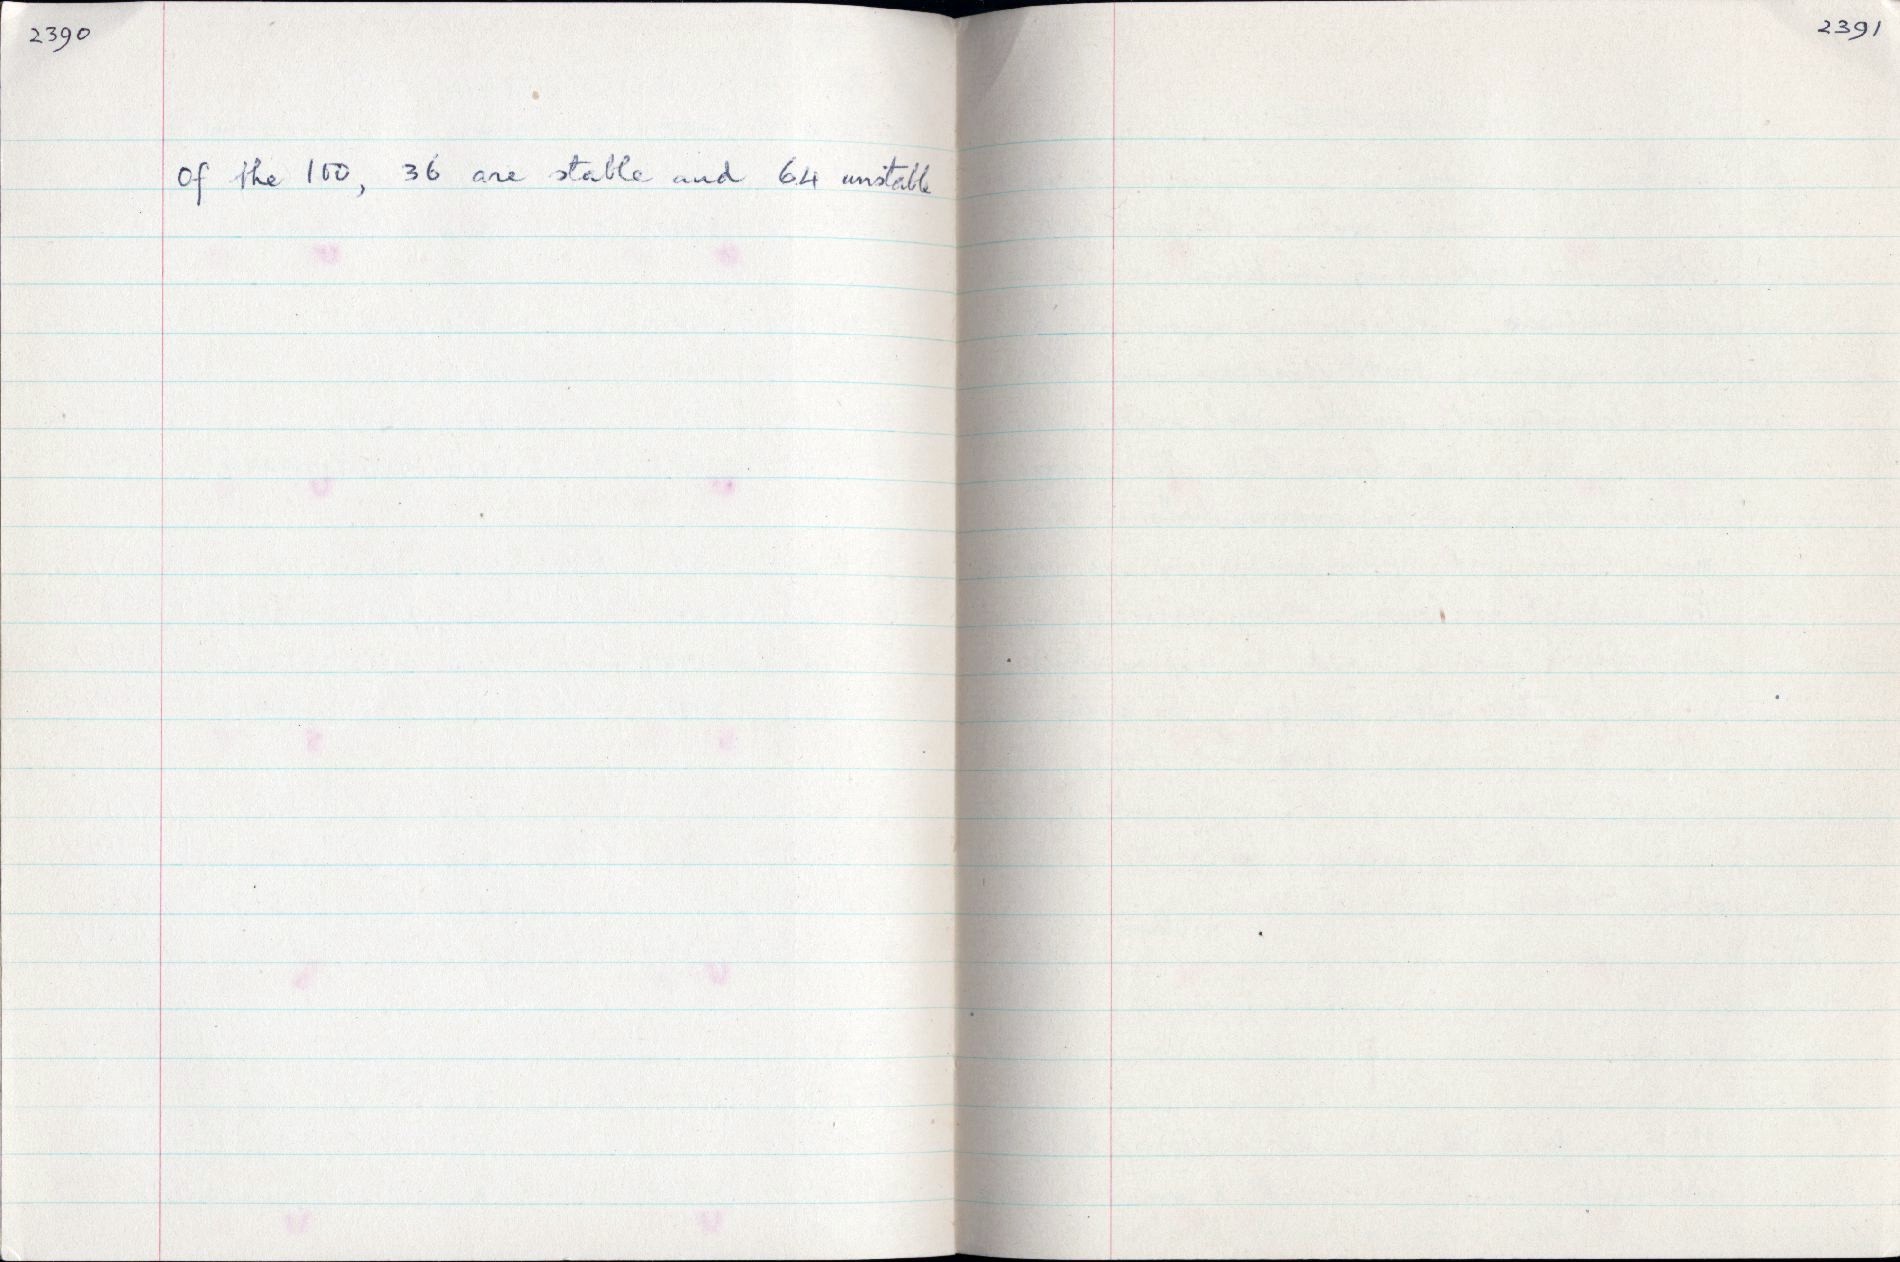 2390
Of the 100, 36 are stable and 64 unstable
2391